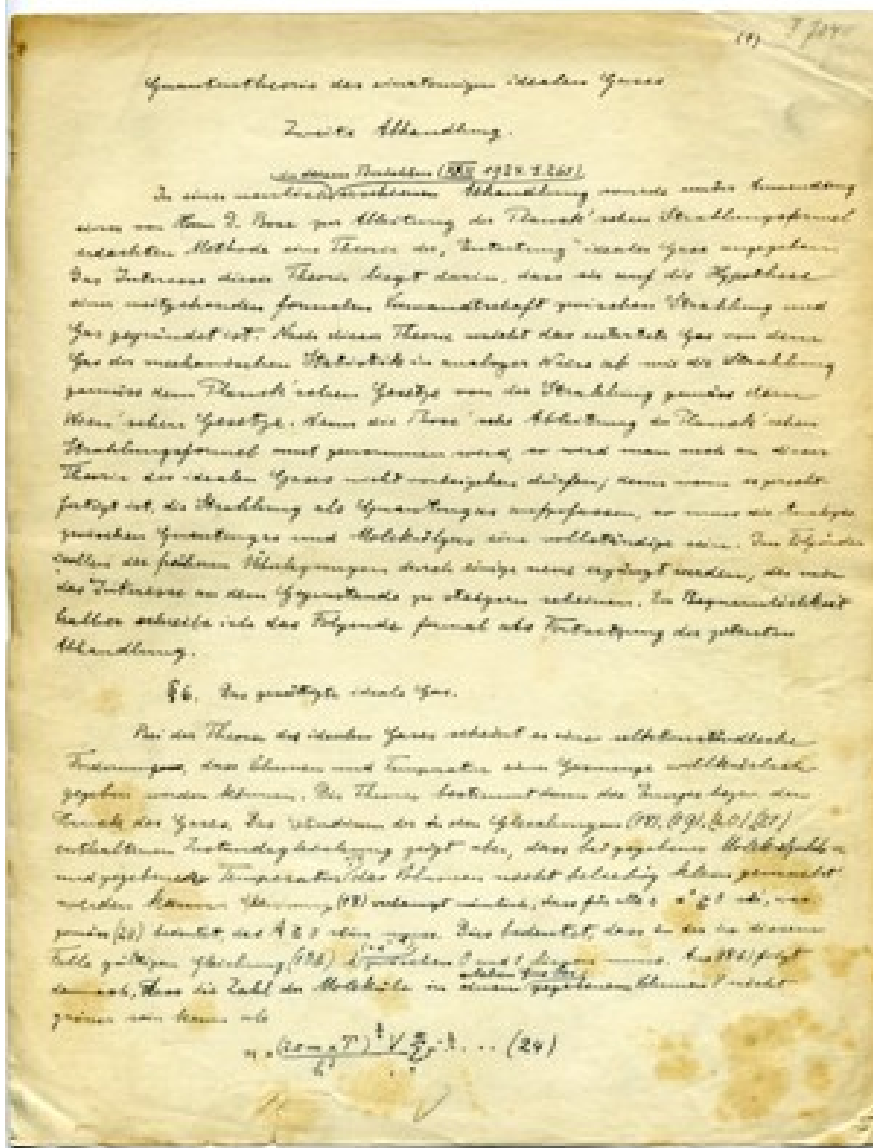 (1)
Quantentheorie des einatomigen idealen Gases
Zweite Abhandlung.
in diesen Berichten (XXII 1924. S. 261)
In einer neulich erschienenen Abhandlung wurde unter Anwendung
einer von Herrn D. Bose zur Ableitung der Planck'schen Strahlungsformel
erdachten Methode eine Theorie der „Entartung" idealer Gase angegeben.
Das Interesse dieser Theorie liegt darin, dass sie auf die Hypothese
einer weitgehenden formalen Verwandtschaft zwischen Strahlung und
Gas gegründet ist. Nach dieser Theorie weicht das entartete Gas von dem
Gas der mechanischen Statistik in analoger Weise ab wie die Strahlung
gemäss dem Planck'schen Gesetze von der Strahlung gemäss dem
Wien'schen Gesetze. Wenn die Bose'sche Ableitung der Planck'schen
Strahlungsformel ernst genommen wird, so wird man auch an dieser
Theorie des idealen Gases nicht vorbeigehen dürfen; denn wenn es gerecht-
fertigt ist, die Strahlung als Quantengas aufzufassen, so muss die Analogie
zwischen Quantengas und Molekülgas eine vollständige sein. Im Folgenden
sollen die früheren Überlegungen durch einige neue ergänzt werden, die mir
das Interesse an dem Gegenstande zu steigern scheinen. Der Bequemlichkeit
halber schreibe ich das Folgende formal als Fortsetzung der zitierten
Abhandlung.
§ 6. Das gesättigte ideale Gas.
Bei der Theorie des idealen Gases scheint es eine selbstverständliche
Forderung, dass Volumen und Temperatur einer Gasmenge willkürlich
gegeben werden können. Die Theorie bestimmt dann die Energie bezw. den
Druck des Gases. Das Studium der in den Gleichungen (18), (19), (20), (21)
enthaltenen Zustandsgleichung zeigt aber, dass bei gegebener Molekülzahl n
und gegebener Temperatur das Volumen nicht beliebig klein gemacht
werden kann. Gleichung (18) verlangt nämlich, dass für alle s αˢ ≧ 0 sei, was
gemäss (20) bedeutet, dass A ≧ 0 sein muss. Dies bedeutet, dass in der in diesem
Falle gültigen Gleichung (18b) λ zwischen 0 und 1 liegen muss. Aus (18b) folgt
demnach, dass die Zahl der Moleküle in einem gegebenen Volumen V nicht
grösser sein kann als
(24)